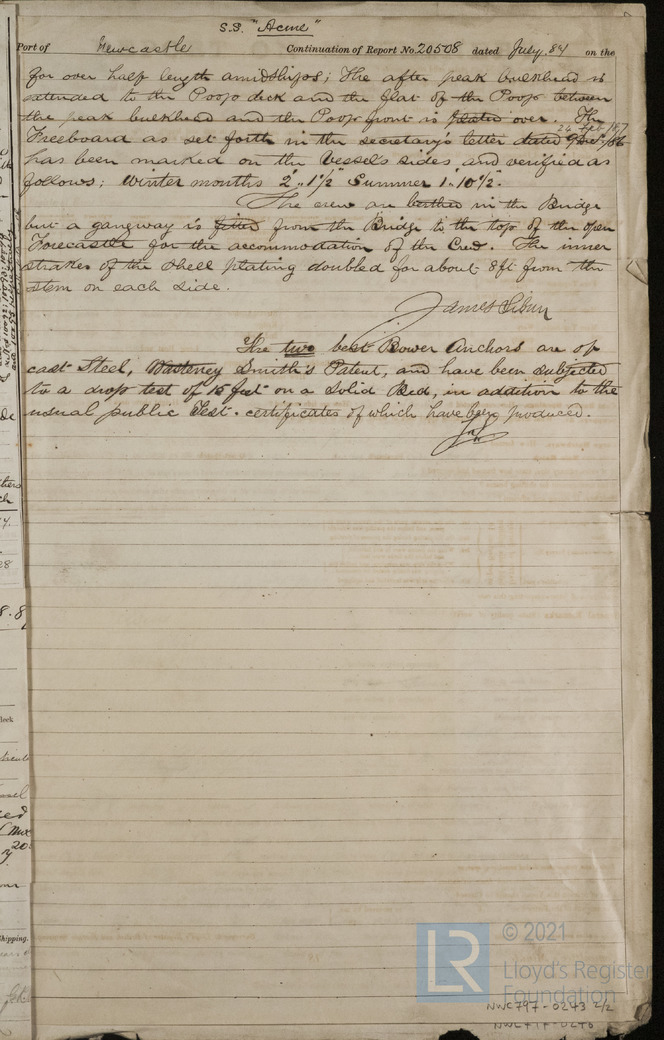 S.S. "Acme"
Port of Newcastle Continuation of Report No. 20508 dated July. 84 on the
for over half length amidships; The after peak bulkhead is
extended to the Poop deck and the flat of the Poop between
the peak bulkhead and the Poop front is plated over. The
24 Feb 1/87
Freeboard as set forth in the secretary's letter dated 9 Dec. /86
has been marked on the Vessel's sides and verified as
follows; Winter months 2' 1½" Summer 1' 10½".
The crew are berthed in the Bridge
but a gangway is fitted from the Bridge to the top of the open
Forecastle for the accommodation of the Crew. The inner
strakes of the shell plating doubled for about 8ft from the
stem on each side.
James
The two best Bower Anchors are of
cast Steel, Wasteney Smith's Patent, and have been subjected
to a drop test of 15 feet on a Solid Bed, in addition to the
usual public Test. certificates of which have been produced.
LR
© 2021
Lloyd's Register
Foundation
NWC797-0243 2/2